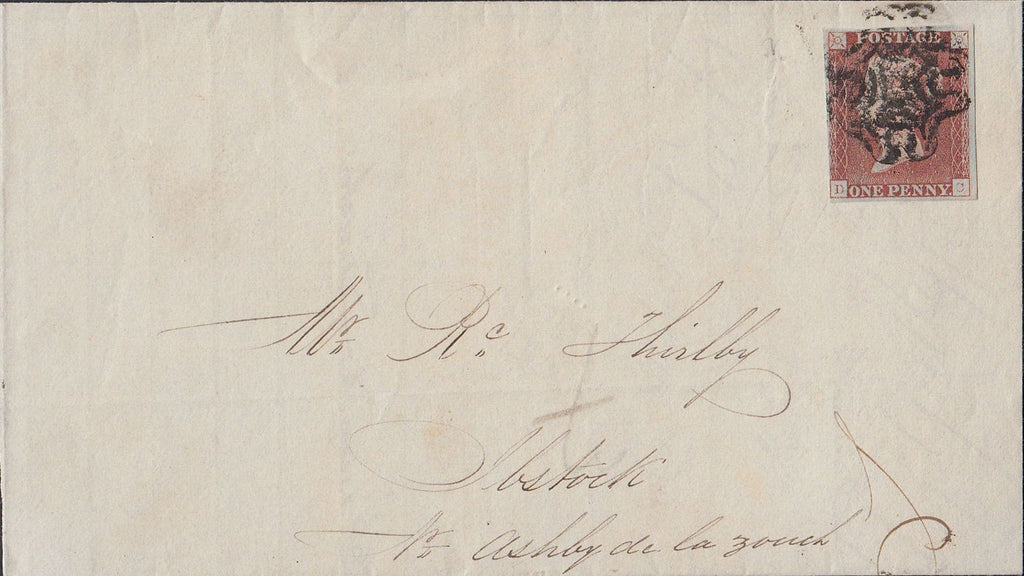 POSTAGE
D ONE PENNY. C
Mr. Rc. Thirlby
Ibstock
Nr. Ashby de la zouch